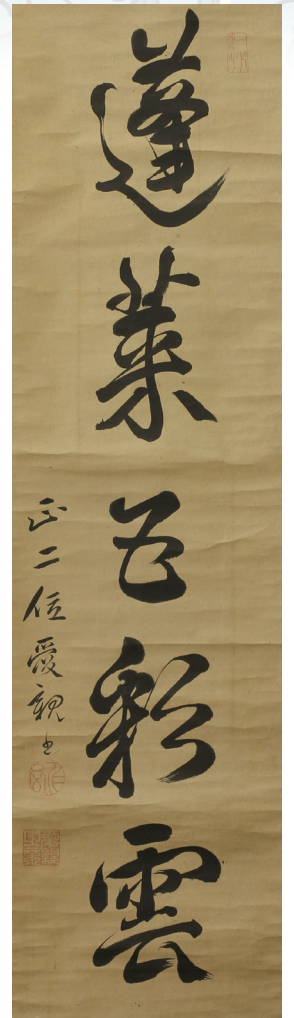 蓬莱五彩雲
正二位愛親書